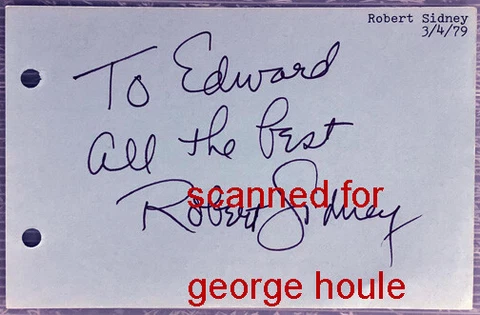 Robert Sidney
3/4/79
To Edward
All the best
Robert Sidney
scanned for
george houle